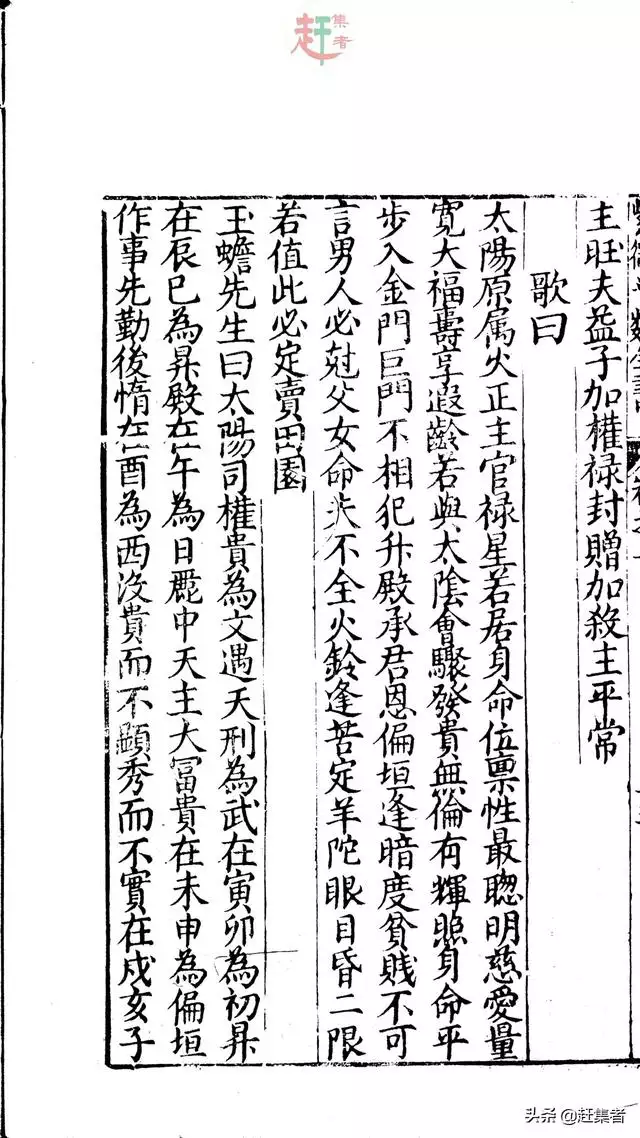 赶集者
主旺夫益子加權祿封贈加殺主平常
歌曰
太陽原属火正主官禄星若居身命位禀性最聰明慈愛量
寛大福壽享遐齡若與太陰會驟發貴無倫有輝照身命平
步入金門巨門不相犯升殿承君恩偏垣逢暗度貧賤不可
言男人必尅父女命夫不全火鈴逢苦定羊陀眼目昏二限
若值此必定賣田園
玉蟾先生曰太陽司權貴為文遇天刑為武在寅卯為初昇
在辰巳為昇殿在午為日麗中天主大冨貴在未申為偏垣
作事先勤後惰在酉為西没貴而不顯秀而不實在戍亥子
头条 @赶集者